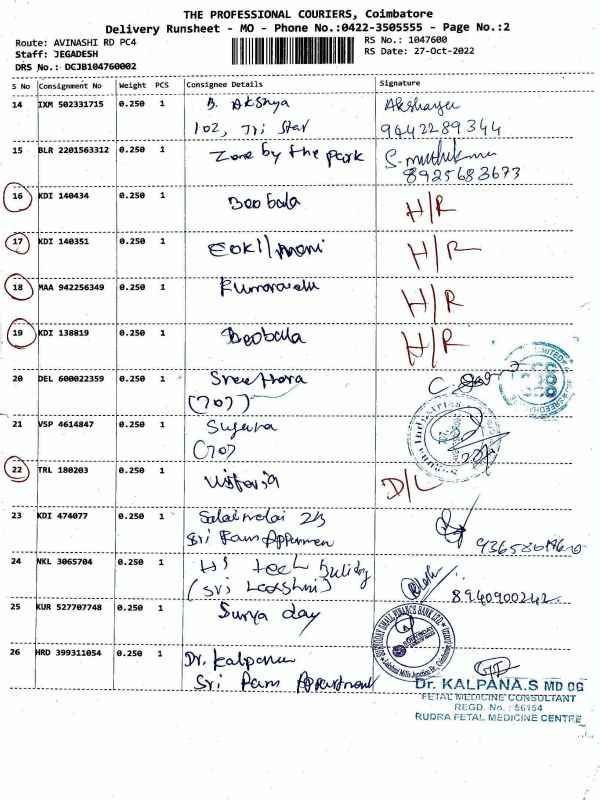 THE PROFESSIONAL COURIERS, Coimbatore
Delivery Runsheet - MO - Phone No.:0422-3505555 - Page No.:2
Route: AVINASHI RD PC4
RS No.: 1047600
Staff: JEGADESH
RS Date: 27-Oct-2022
DRS No.: DCJB104760002
S No Consignment No Weight PCS Consignee Details Signature
14 IXM 502331715 0.250 1 B. Akshya Akshaya
102, Tri Star 9442289344
15 BLR 2201563312 0.250 1 Zone by the park
8925683673
16 KDI 140434 0.250 1 Beobala H/R
17 KDI 140351 0.250 1 H/R
18 MAA 942256349 0.250 1 H/R
19 KDI 138819 0.250 1 Beobala H/R
20 DEL 600022359 0.250 1 Sreethara
(707)
21 VSP 4614847 0.250 1
(70)
22 TRL 180203 0.250 1 D/L
23 KDI 474077 0.250 1
Sri Ram
24 NKL 3065704 0.250 1 Hi tech
(Sri Lakshmi) 8940900242
25 KUR 527707748 0.250 1 Surya day
26 HRD 399311054 0.250 1 Dr. Kalpana
Sri Ram Appartment
Dr. KALPANA.S MD OG
FETAL MEDICINE CONSULTANT
REGD. No. : 56154
RUDRA FETAL MEDICINE CENTRE